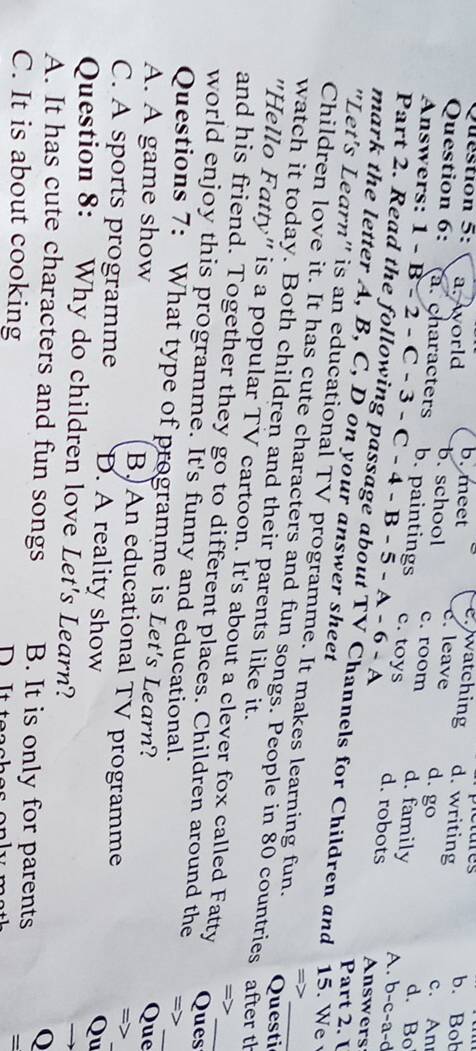 Question 5: a. world b. meet c. watching d. writing
Question 6: a. characters b. school c. leave d. go
b. paintings c. room d. family
c. toys d. robots
Answers: 1 - B - 2 - C - 3 - C - 4 - B - 5 - A - 6 - A
Part 2. Read the following passage about TV Channels for Children and
mark the letter A, B, C, D on your answer sheet
"Let's Learn" is an educational TV programme. It makes learning fun.
Children love it. It has cute characters and fun songs. People in 80 countries
watch it today. Both children and their parents like it.
"Hello Fatty" is a popular TV cartoon. It's about a clever fox called Fatty
and his friend. Together they go to different places. Children around the
world enjoy this programme. It's funny and educational.
Questions 7: What type of programme is Let's Learn?
A. A game show B. An educational TV programme
C. A sports programme D. A reality show
Question 8: Why do children love Let's Learn?
A. It has cute characters and fun songs B. It is only for parents
C. It is about cooking D. It teaches only math
b. Bob
c. An
d. Bo
A. b-c-a-d
Answers
Part 2.
15. We
=>
Questi
after th
=>
Ques
=>
Que
=>
Qu
→
Q